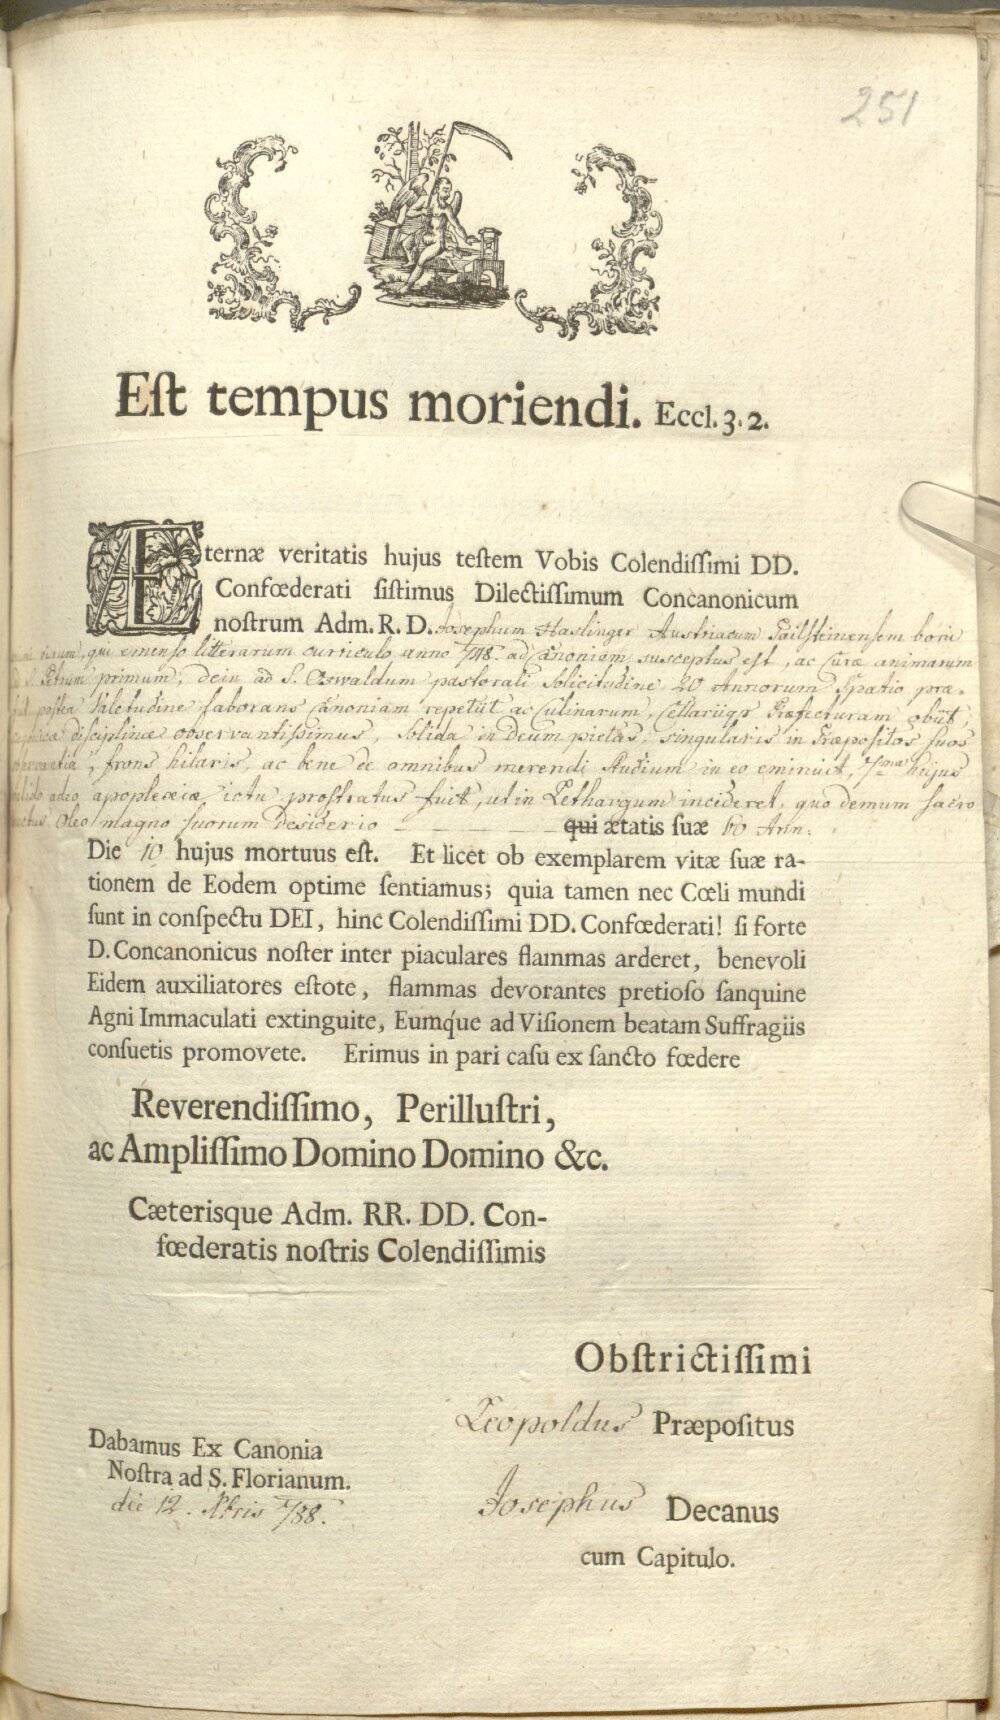 251
Eſt tempus moriendi. Eccl. 3. 2.
Æternæ veritatis hujus teſtem Vobis Colendiſſimi DD.
Confœderati ſiſtimus Dilectiſſimum Concanonicum
noſtrum Adm. R. D. Josephum Haslinger Austriacum Pailsteinensem boni
virum, qui emenso litterarum curriculo anno 1748. ad Canoniam susceptus est, ac Curæ animarum
ad S. Petrum primum, dein ad S. Oswaldum pastorali solicitudine 20 Annorum Spatio præ-
fuit, postea Valetudine laborans Canoniam repetiit ac Culinarum, Cellariiqz Præfecturam obiit,
disciplinæ observantissimus, Solida in Deum pietas, singularis in Præpositos suos
observantia, frons hilaris, ac bene de omnibus merendi Studium in eo eminuit, 7ma hujus
adeo apoplexiæ ictu prostratus fuit, ut in Lethargum incideret, quo demum sacro
Oleo magno suorum desiderio qui ætatis ſuæ 60 Ann:
Die 10 hujus mortuus eſt. Et licet ob exemplarem vitæ ſuæ ra-
tionem de Eodem optime ſentiamus; quia tamen nec Cœli mundi
ſunt in conſpectu DEI, hinc Colendiſſimi DD. Confœderati! ſi forte
D. Concanonicus noſter inter piaculares flammas arderet, benevoli
Eidem auxiliatores eſtote, flammas devorantes pretioſo ſanquine
Agni Immaculati extinguite, Eumque ad Viſionem beatam Suffragiis
conſuetis promovete. Erimus in pari caſu ex ſancto fœdere
Reverendiſſimo, Perilluſtri,
ac Ampliſſimo Domino Domino &c.
Cæterisque Adm. RR. DD. Con-
fœderatis noſtris Colendiſſimis
Obſtrictiſſimi
Leopoldus Præpoſitus
Dabamus Ex Canonia
Noſtra ad S. Florianum.
die 12. Xbris 1788.
Josephus Decanus
cum Capitulo.